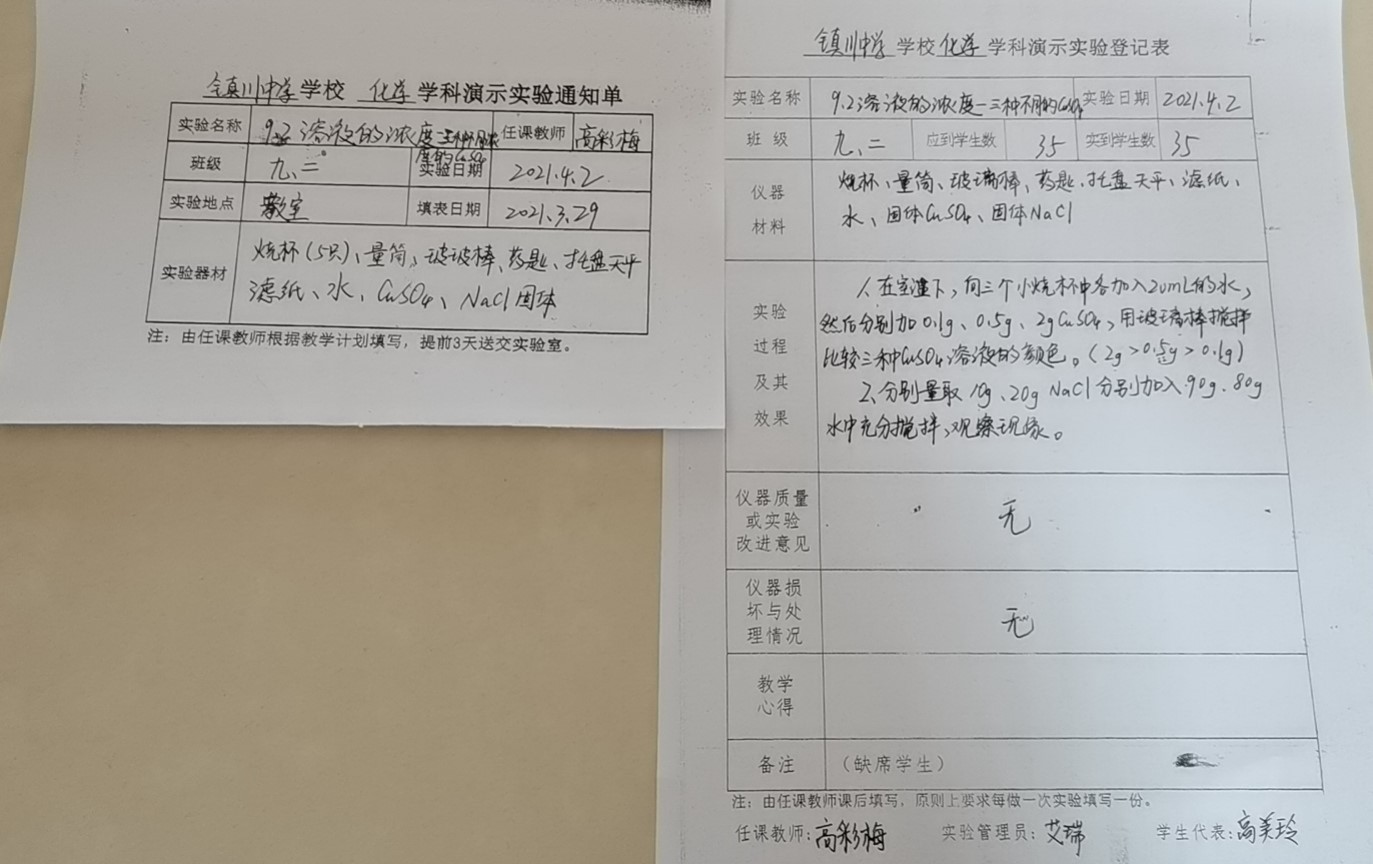 镇川中学学校 化学学科演示实验通知单
实验名称 9.2溶液的浓度—三种不同浓度的CuSO4 任课教师 高彩梅
班级 九、二 实验日期 2021.4.2
实验地点 教室 填表日期 2021.3.29
实验器材
烧杯(5只)、量筒、玻玻棒、药匙、托盘天平
滤纸、水、CuSO4、NaCl固体
注:由任课教师根据教学计划填写,提前3天送交实验室。
镇川中学学校化学学科演示实验登记表
实验名称 9.2溶液的浓度—三种不同的CuSO4 实验日期 2021.4.2
班 级 九、二 应到学生数 35 实到学生数 35
仪器
材料
烧杯、量筒、玻璃棒、药匙、托盘天平、滤纸、
水、固体CuSO4、固体NaCl
实验
过程
及其
效果
1、在室温下,向三个小烧杯中各加入20mL的水,
然后分别加0.1g、0.5g、2gCuSO4,用玻璃棒搅拌
比较三种CuSO4溶液的颜色。(2g>0.5g>0.1g)
2、分别量取10g、20g NaCl分别加入90g、80g
水中充分搅拌,观察现象。
仪器质量
或实验
改进意见
无
仪器损
坏与处
理情况
无
教学
心得
备注 (缺席学生)
注:由任课教师课后填写,原则上要求每做一次实验填写一份。
任课教师:高彩梅 实验管理员:艾瑞 学生代表:高美玲